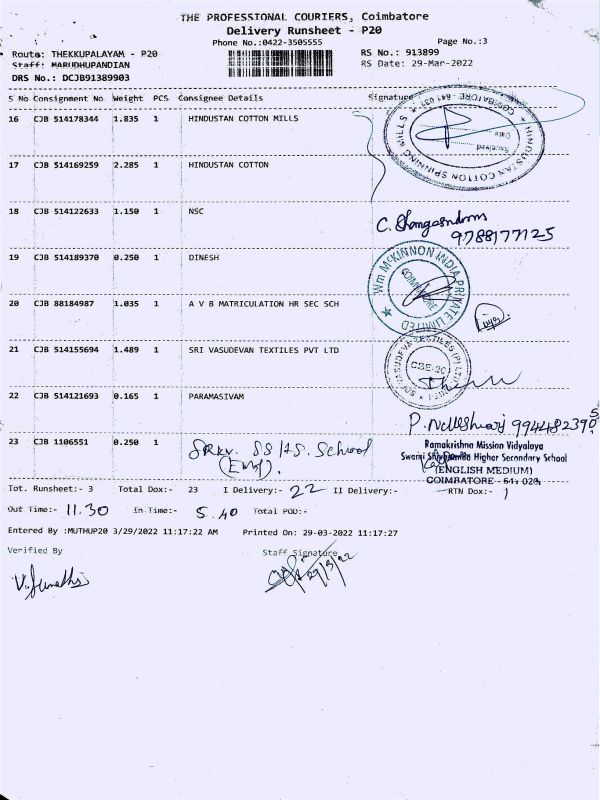 THE PROFESSIONAL COURIERS, Coimbatore
Delivery Runsheet - P20
Phone No.:0422-3505555 Page No.:3
Route: THEKKUPALAYAM - P20 RS No.: 913899
Staff: MARUDHUPANDIAN RS Date: 29-Mar-2022
DRS No.: DCJB91389903
S No Consignment No Weight PCS Consignee Details Signature
16 CJB 514178344 1.835 1 HINDUSTAN COTTON MILLS
HINDUSTAN COTTON SPINNING MILLS ★ COIMBATORE - 641 031 ★
Received
Date
17 CJB 514169259 2.285 1 HINDUSTAN COTTON
18 CJB 514122633 1.150 1 NSC
9788177125
19 CJB 514189370 0.250 1 DINESH
Wm McKINNON INDIA PRIVATE LIMITED ★
COIMBATORE
20 CJB 88184987 1.035 1 A V B MATRICULATION HR SEC SCH
21 CJB 514155694 1.489 1 SRI VASUDEVAN TEXTILES PVT LTD
SRI VASUDEVA TEXTILES (P) LTD
22 CJB 514121693 0.165 1 PARAMASIVAM
23 CJB 1106551 0.250 1 SRKV. SS HS. School
(Eng).
Ramakrishna Mission Vidyalaya
Swami Shivananda Higher Secondary School
(ENGLISH MEDIUM)
COIMBATORE - 641 020.
Tot. Runsheet:- 3 Total Dox:- 23 I Delivery:- 22 II Delivery:- RTN Dox:- 1
Out Time:- 11.30 In Time:- 5.40 Total POD:-
Entered By :MUTHUP20 3/29/2022 11:17:22 AM Printed On: 29-03-2022 11:17:27
Verified By Staff Signature
29/3/22